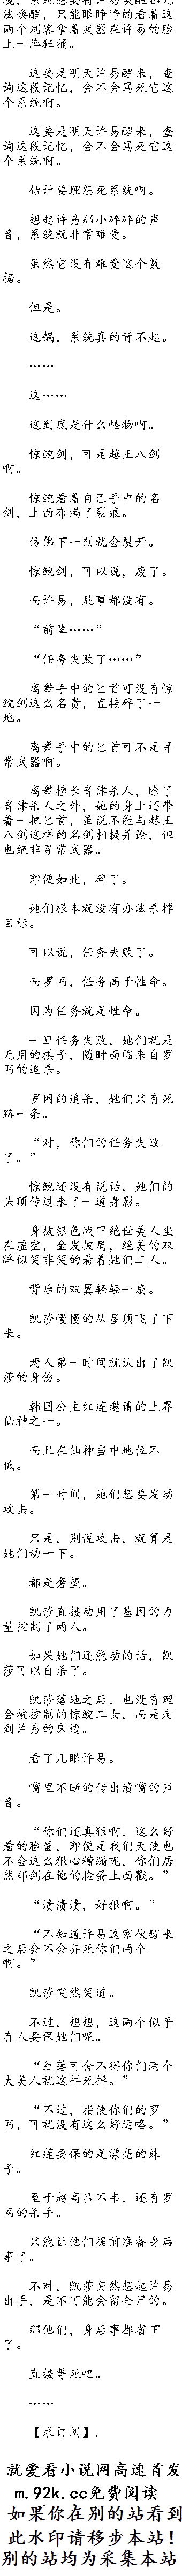 境，系统想要将许易唤醒都无
法唤醒，只能眼睁睁的看着这
两个刺客拿着武器在许易的脸
上一阵狂捅。
这要是明天许易醒来，查
询这段记忆，会不会骂死它这
个系统啊。
这要是明天许易醒来，查
询这段记忆，会不会骂死它这
个系统啊。
估计要埋怨死系统啊。
想起许易那小碎碎的声
音，系统就非常难受。
虽然它没有难受这个数
据。
但是。
这锅，系统真的背不起。
……
这……
这到底是什么怪物啊。
惊鲵剑，可是越王八剑
啊。
惊鲵看着自己手中的名
剑，上面布满了裂痕。
仿佛下一刻就会裂开。
惊鲵剑，可以说，废了。
而许易，屁事都没有。
“前辈……”
“任务失败了……”
离舞手中的匕首可没有惊
鲵剑这么名贵，直接碎了一
地。
离舞手中的匕首可不是寻
常武器啊。
离舞擅长音律杀人，除了
音律杀人之外，她的身上还带
着一把匕首，虽说不能与越王
八剑这样的名剑相提并论，但
也绝非寻常武器。
即便如此，碎了。
她们根本就没有办法杀掉
目标。
可以说，任务失败了。
而罗网，任务高于性命。
因为任务就是性命。
一旦任务失败，她们就是
无用的棋子，随时面临来自罗
网的追杀。
罗网的追杀，她们只有死
路一条。
“对，你们的任务失败
了。”
惊鲵还没有说话，她们的
头顶传过来了一道身影。
身披银色战甲绝世美人坐
在虚空，金发披肩，绝美的双
眸似笑非笑的看着她们二人。
背后的双翼轻轻一扇。
凯莎慢慢的从屋顶飞了下
来。
两人第一时间就认出了凯
莎的身份。
韩国公主红莲邀请的上界
仙神之一。
而且在仙神当中地位不
低。
第一时间，她们想要发动
攻击。
只是，别说攻击，就算是
她们动一下。
都是奢望。
凯莎直接动用了基因的力
量控制了两人。
如果她们还能动的话，凯
莎可以自杀了。
凯莎落地之后，也没有理
会被控制的惊鲵二女，而是走
到许易的床边。
看了几眼许易。
嘴里不断的传出渍嘴的声
音。
“你们还真狠啊，这么好
看的脸蛋，即便是我们天使也
不会这么狠心糟蹋呢，你们居
然那剑在他的脸蛋上面戳。”
“渍渍渍，好狠啊。”
“不知道许易这家伙醒来
之后会不会弄死你们两个
啊。”
凯莎突然笑道。
不过，想想，这两个似乎
有人要保她们呢。
“红莲可舍不得你们两个
大美人就这样死掉。”
“不过，指使你们的罗
网，可就没有这么好运咯。”
红莲要保的是漂亮的妹
子。
至于赵高吕不韦，还有罗
网的杀手。
只能让他们提前准备身后
事了。
不对，凯莎突然想起许易
出手，是不可能会留全尸的。
那他们，身后事都省下
了。
直接等死吧。
……
【求订阅】.
就爱看小说网高速首发
m.92k.cc免费阅读
如果你在别的站看到
此水印请移步本站！
别的站均为采集本站